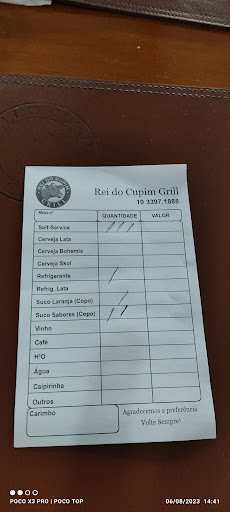 REI DO CUPIM
GRILL
Rei do Cupim Grill
19 3397.1888
Mesa nº
QUANTIDADE VALOR
Self-Service / / /
Cerveja Lata
Cerveja Bohemia
Cerveja Skol
Refrigerante /
Refrig. Lata
Suco Laranja (Copo) /
Suco Sabores (Copo) / /
Vinho
Café
H²O
Água
Caipirinha
Outros
Carimbo
Agradecemos a preferência
Volte Sempre!
POCO X3 PRO | POCO TOP
06/08/2023 14:41